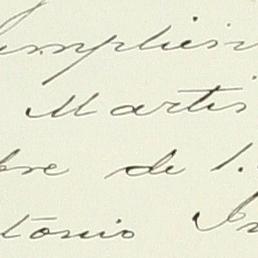 umplien
Martis
bre de 1.
tonio